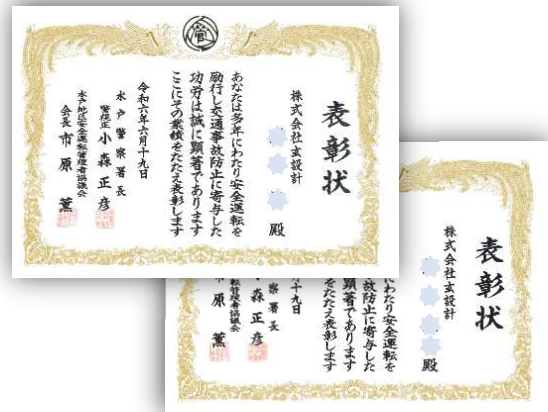 表彰状
株式会社玄設計
殿
あなたは多年にわたり安全運転を
励行し交通事故防止に寄与した
功労は誠に顕著であります
ここにその業績をたたえ表彰します
令和六年六月十九日
水戸警察署長
警視正 小森正彦
水戸地区安全運転管理者協議会
会長 市原 薫
表彰状
株式会社玄設計
殿
にわたり安全運転を
故防止に寄与した
顕著であります
をたたえ表彰します
十九日
察署長
森正彦
転管理者協議会
原 薫